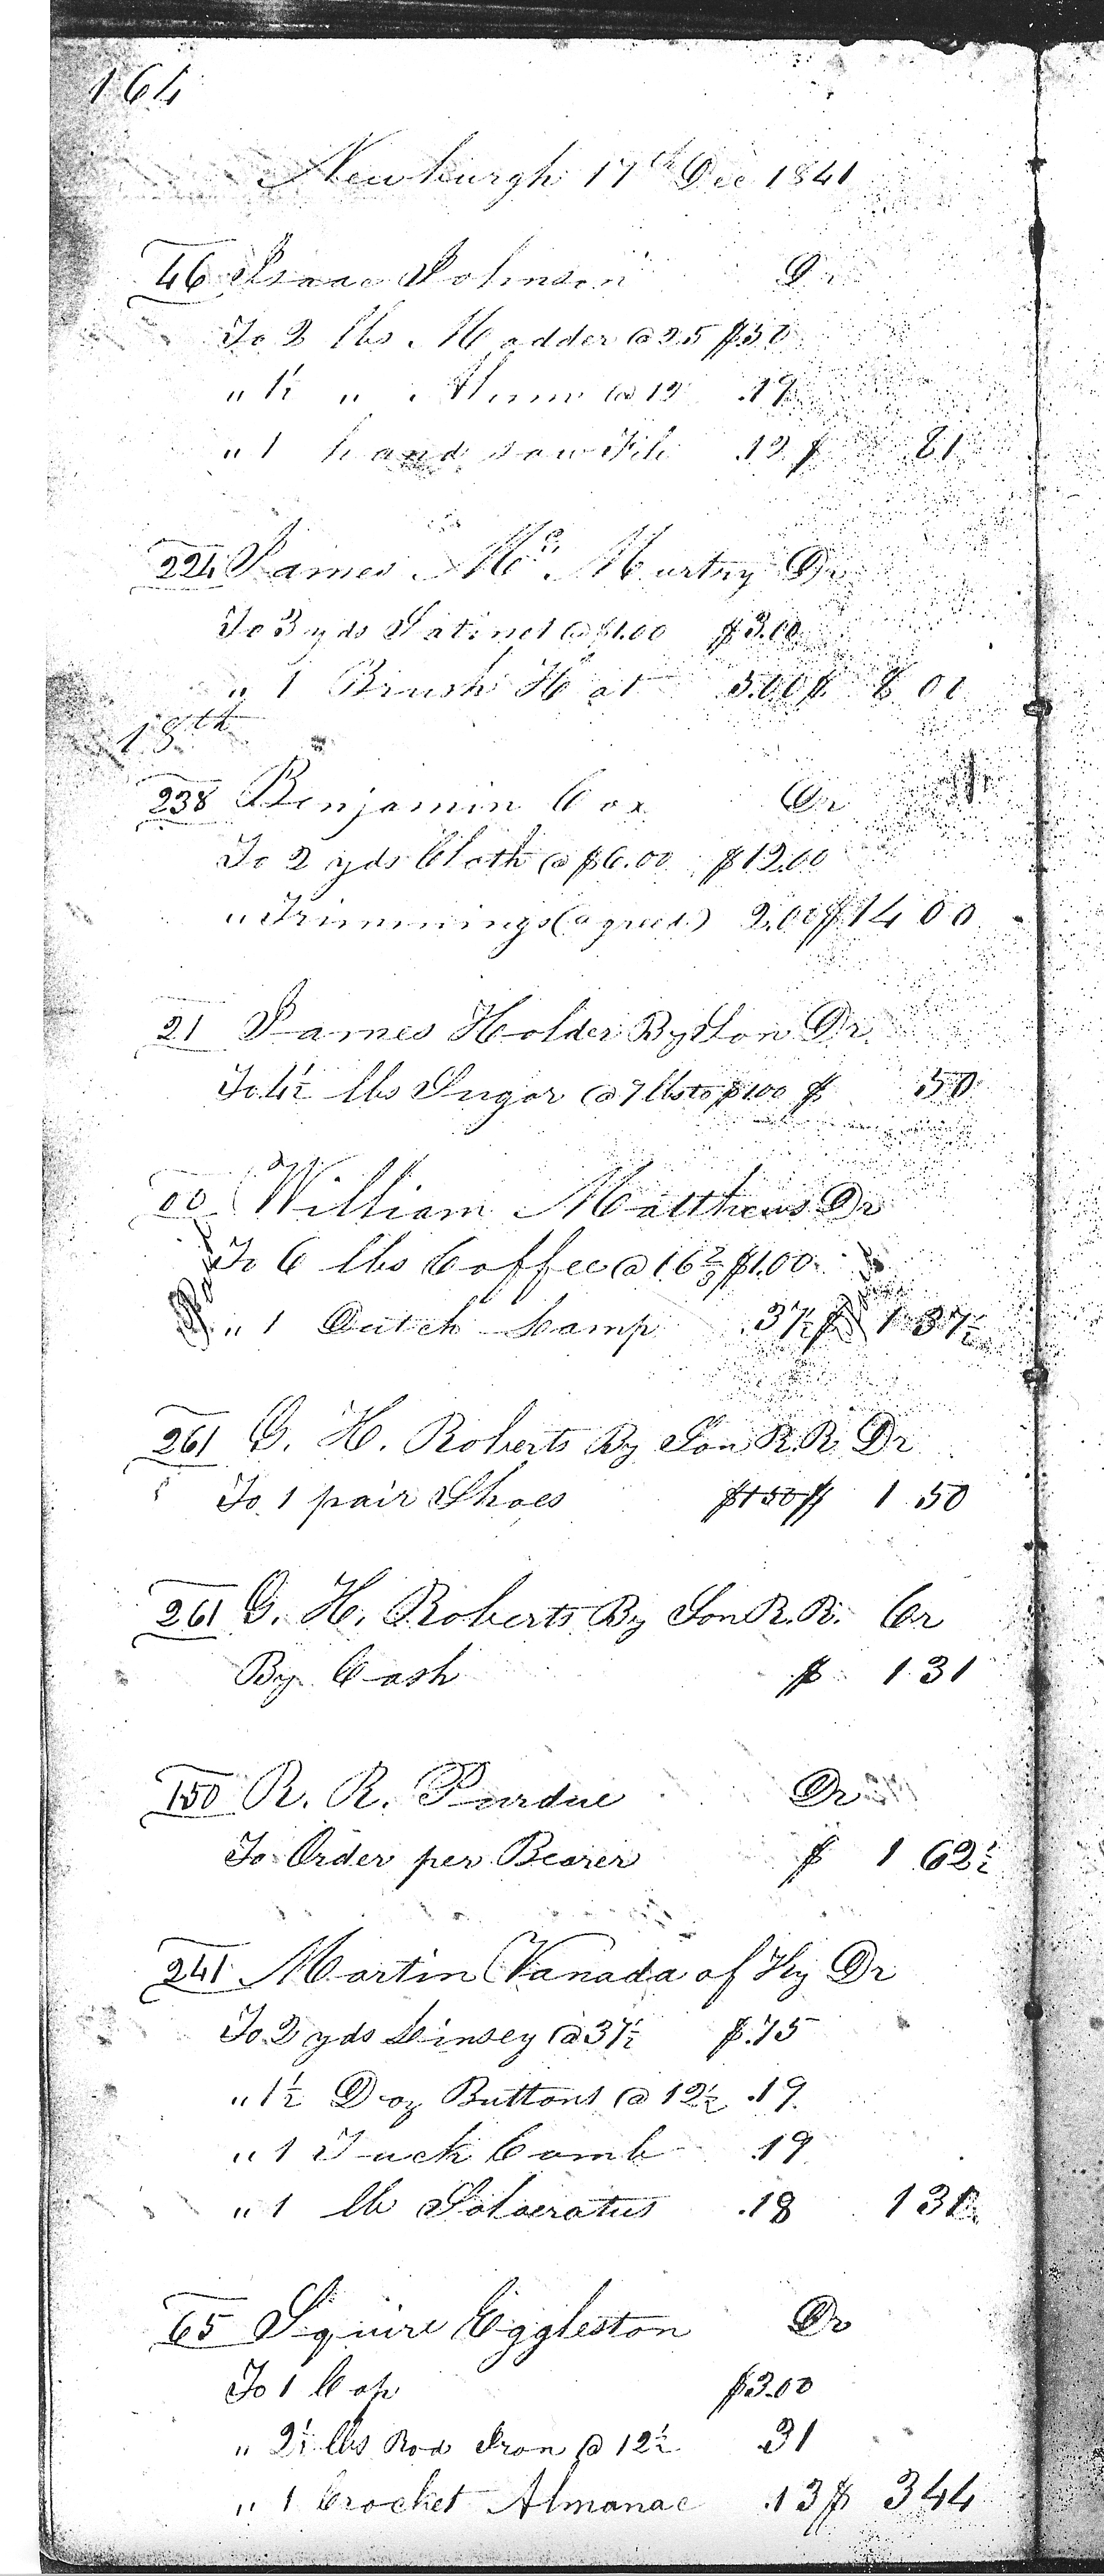 164
Newburgh 17th Dec 1841
46 Isaac Johnson Dr
To 2 lbs Madder @ 25 $.50
" 1½ " Alum @ 12 .19
" 1 hand saw File .12 $ 81
224 James Mc. Murtry Dr
To 3 yds Satinet @ $1.00 $3.00
" 1 Brush Hat 5.00 $ 8 00
18th
238 Benjamin Cox Dr
To 2 yds Cloth @ $6.00 $12.00
" Trimmings (agreed) 2.00 $14 00
21 James Holder By Son Dr
To 4½ lbs Sugar @ 7 lbs to $1.00 $ 50
00 William Matthews Dr
To 6 lbs Coffee @ 16⅔ $1.00
Paid " 1 Dutch Lamp .37½ $ Paid 1 37½
261 G. H. Roberts By Son R.R. Dr
To 1 pair Shoes $1 50 $ 1 50
261 G. H. Roberts By Son R.R. Cr
By Cash $ 1 31
150 R. R. Purdue Dr
To Order per Bearer $ 1 62½
241 Martin Vanada of Ky Dr
To 2 yds Linsey @ 37½ $.75
" 1½ Doz Buttons @ 12½ .19
" 1 Tuck Comb .19
" 1 lb Salaeratus .18 1 31
65 Squire Eggleston Dr
To 1 Cap $3.00
" 2½ lbs Rod Iron @ 12½ .31
" 1 Crocket Almanac .13 $ 3 44